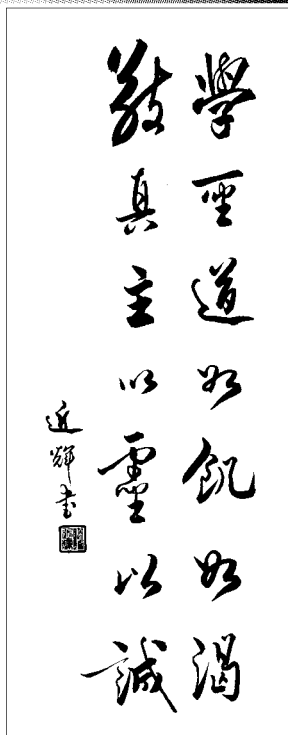 學聖道如飢如渴
敬真主以靈以誠
近輝書